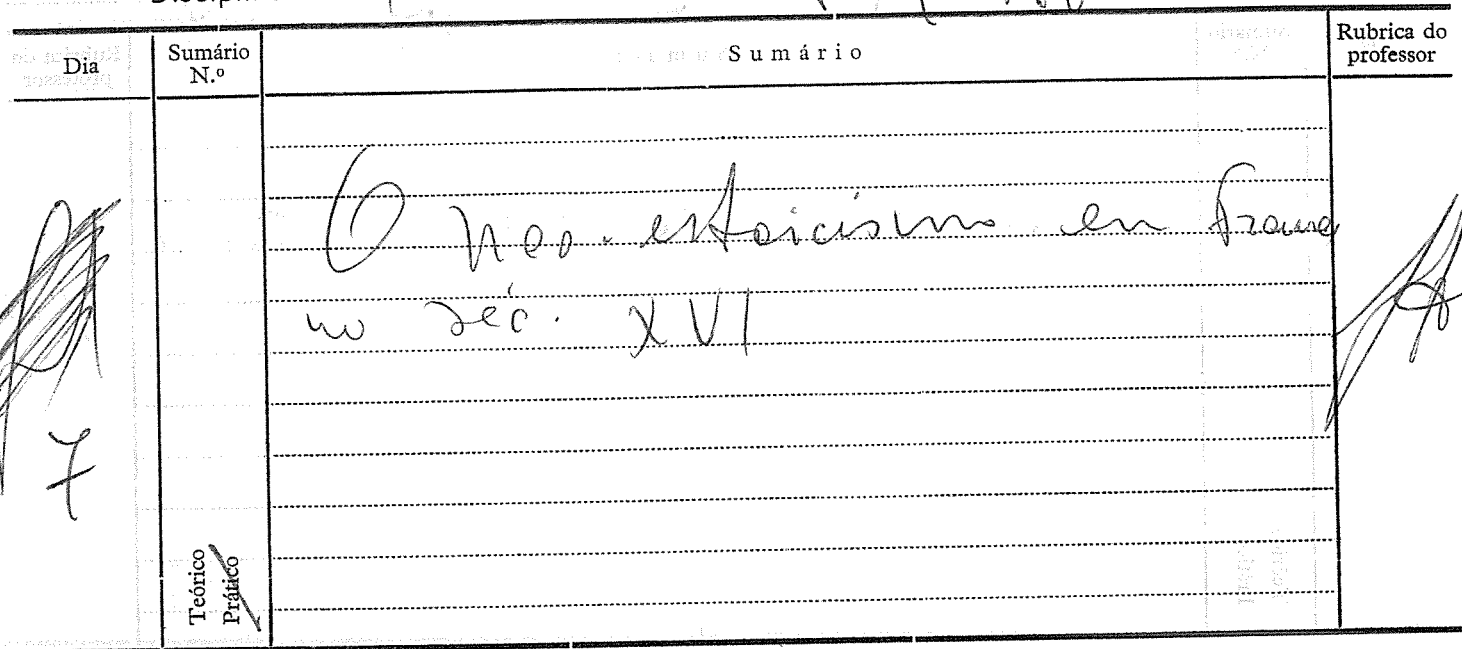 Dia
Sumário N.º
Sumário
Rubrica do professor
O neo-estoicismo em França
no séc. XVI
7
Teórico
Prático